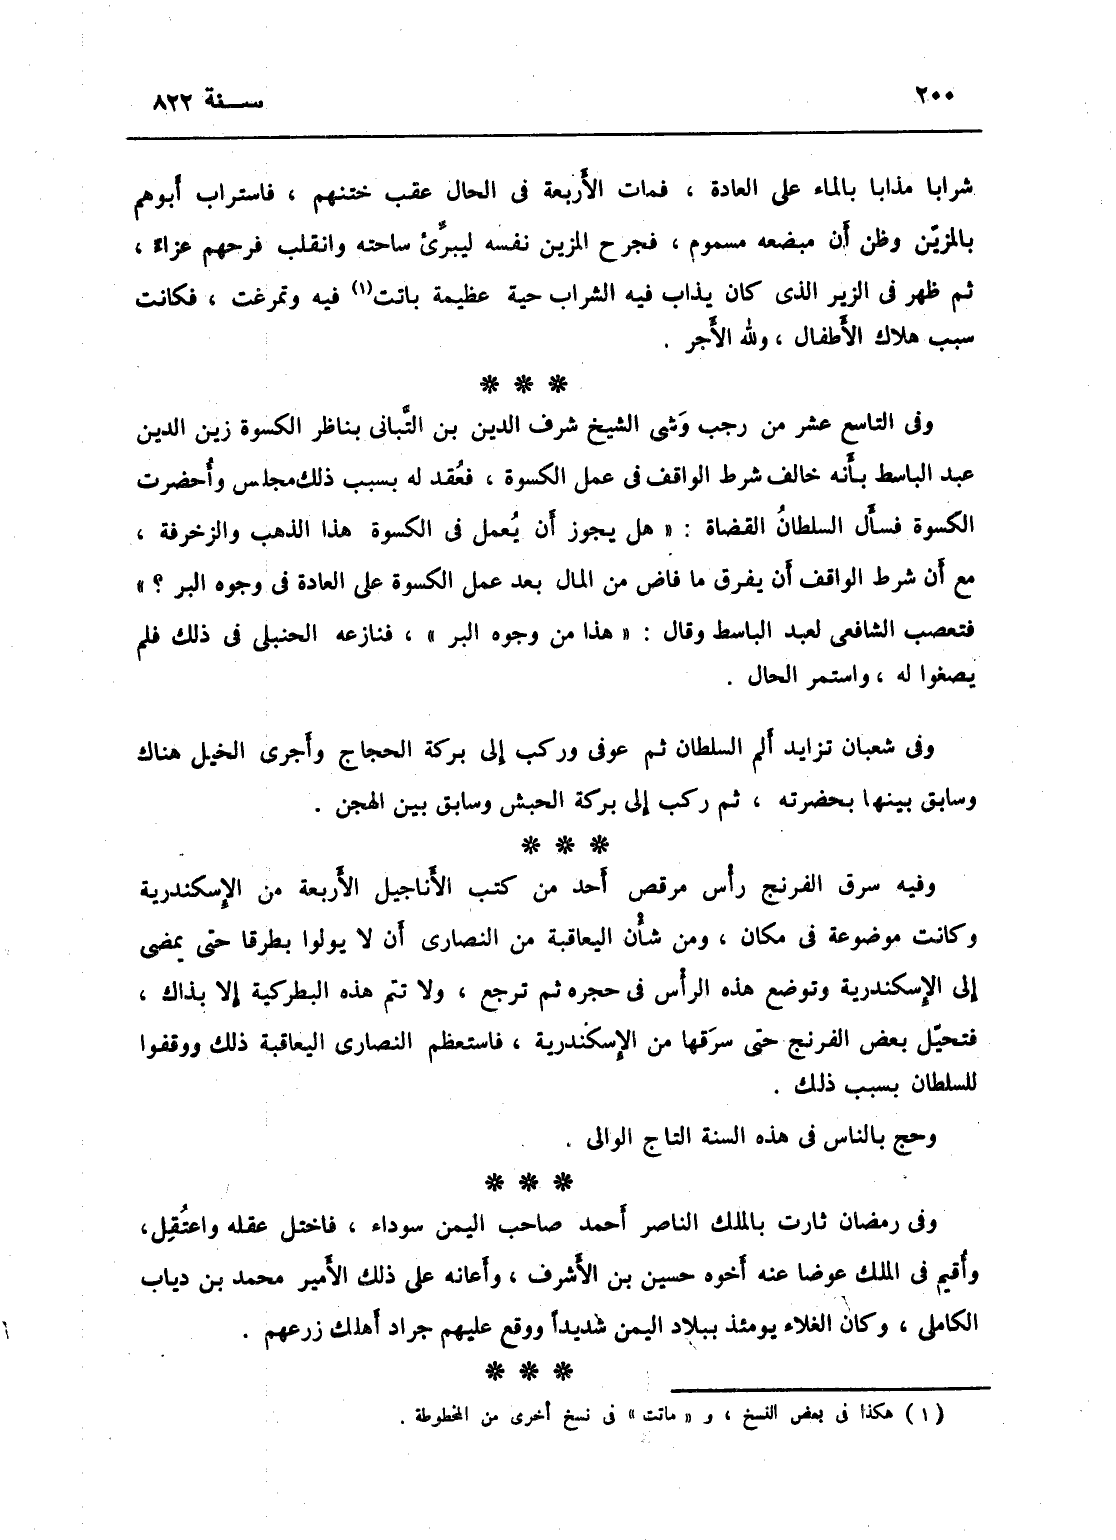 ٢٠٠
سـنة ٨٢٢
شرابا مذابا بالماء على العادة ، فمات الأَربعة فى الحال عقب ختنهم ، فاستراب أَبوهم
بالمزيّن وظن أَن مبضعه مسموم ، فجرح المزين نفسه ليبرِّئ ساحته وانقلب فرحهم عزاءً ،
ثم ظهر فى الزير الذى كان يذاب فيه الشراب حية عظيمة باتت(١) فيه وتمرغت ، فكانت
سبب هلاك الأَطفال ، ولله الأَجر .
* * *
وفى التاسع عشر من رجب وَشى الشيخ شرف الدين بن التَّبانى بناظر الكسوة زين الدين
عبد الباسط بأَنه خالف شرط الواقف فى عمل الكسوة ، فعُقد له بسبب ذلك مجلس وأُحضرت
الكسوة فسأَل السلطانُ القضاة : « هل يجوز أَن يُعمل فى الكسوة هذا الذهب والزخرفة ،
مع أَن شرط الواقف أَن يفرق ما فاض من المال بعد عمل الكسوة على العادة فى وجوه البر ؟ »
فتعصب الشافعى لعبد الباسط وقال : « هذا من وجوه البر » ، فنازعه الحنبلى فى ذلك فلم
يصغوا له ، واستمر الحال .
وفى شعبان تزايد أَلم السلطان ثم عوفى وركب إلى بركة الحجاج وأَجرى الخيل هناك
وسابق بينها بحضرته ، ثم ركب إلى بركة الحبش وسابق بين الهجن .
* * *
وفيه سرق الفرنج رأْس مرقص أَحد من كتب الأَناجيل الأَربعة من الإِسكندرية
وكانت موضوعة فى مكان ، ومن شأْن اليعاقبة من النصارى أَن لا يولوا بطرقا حتى يمضى
إلى الإِسكندرية وتوضع هذه الرأْس فى حجره ثم ترجع ، ولا تتم هذه البطركية إلا بذاك ،
فتحيّل بعض الفرنج حتى سرَقها من الإِسكندرية ، فاستعظم النصارى اليعاقبة ذلك ووقفوا
للسلطان بسبب ذلك .
وحج بالناس فى هذه السنة التاج الوالى .
* * *
وفى رمضان ثارت بالملك الناصر أَحمد صاحب اليمن سوداء ، فاختل عقله واعتُقِل،
وأُقيم فى الملك عوضا عنه أَخوه حسين بن الأَشرف ، وأَعانه على ذلك الأَمير محمد بن دياب
الكاملى ، وكان الغلاء يومئذ ببلاد اليمن شديداً ووقع عليهم جراد أَهلك زرعهم .
* * *
( ١ ) هكذا فى بعض النسخ ، و « ماتت » فى نسخ أخرى من المخطوطة .